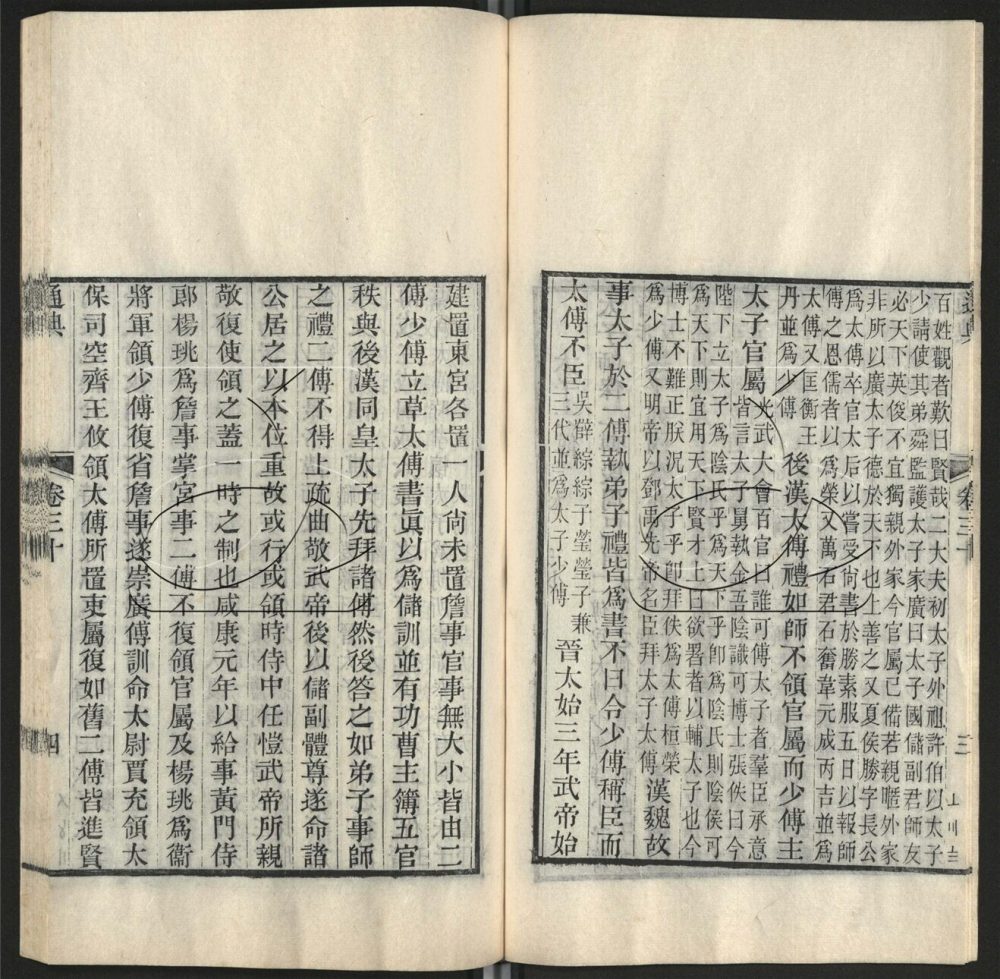 百姓觀者歎曰賢哉二大夫初太子外祖許伯以太子
少請使其弟舜監護太子家廣曰太子國儲副君師友
必天下英俊不宜獨親外家今官屬已備若親暱外家
非所以廣太子德於天下也上善之又夏侯勝字長公
爲太傅卒官太后以嘗受尚書於勝素服五日以報師
傅之恩儒者以爲榮又萬石君石奮韋元成丙吉並爲
太傅又匡衡王
丹並爲少傅
後漢太傅禮如師不領官屬而少傅主
太子官屬
光武大會百官曰誰可傅太子者羣臣承意
皆言太子舅執金吾陰識可博士張佚曰今
陛下立太子爲陰氏乎爲天下乎卽爲陰氏則陰侯可
爲天下則宜用天下賢才上曰欲署者以輔太子也今
博士不難正朕況太子乎卽拜佚爲太傅桓榮
爲少傅又明帝以鄧禹先帝名臣拜太子太傅
漢魏故
事太子於二傅執弟子禮皆爲書不曰令少傅稱臣而
太傅不臣
吳薛綜綜子瑩瑩子兼
三代並爲太子少傅
晉太始三年武帝始
建置東宮各置一人尚未置詹事官事無大小皆由二
傅少傅立草太傅書眞以爲儲訓並有功曹主簿五官
秩與後漢同皇太子先拜諸傅然後答之如弟子事師
之禮二傅不得上疏曲敬武帝後以儲副體尊遂命諸
公居之以本位重故或行或領時侍中任愷武帝所親
敬復使領之蓋一時之制也咸康元年以給事黃門侍
郎楊珧爲詹事掌宮事二傅不復領官屬及楊珧爲衞
將軍領少傅復省詹事遂崇廣傅訓命太尉賈充領太
保司空齊王攸領太傅所置吏屬復如舊二傅皆進賢
通典
卷三十
四